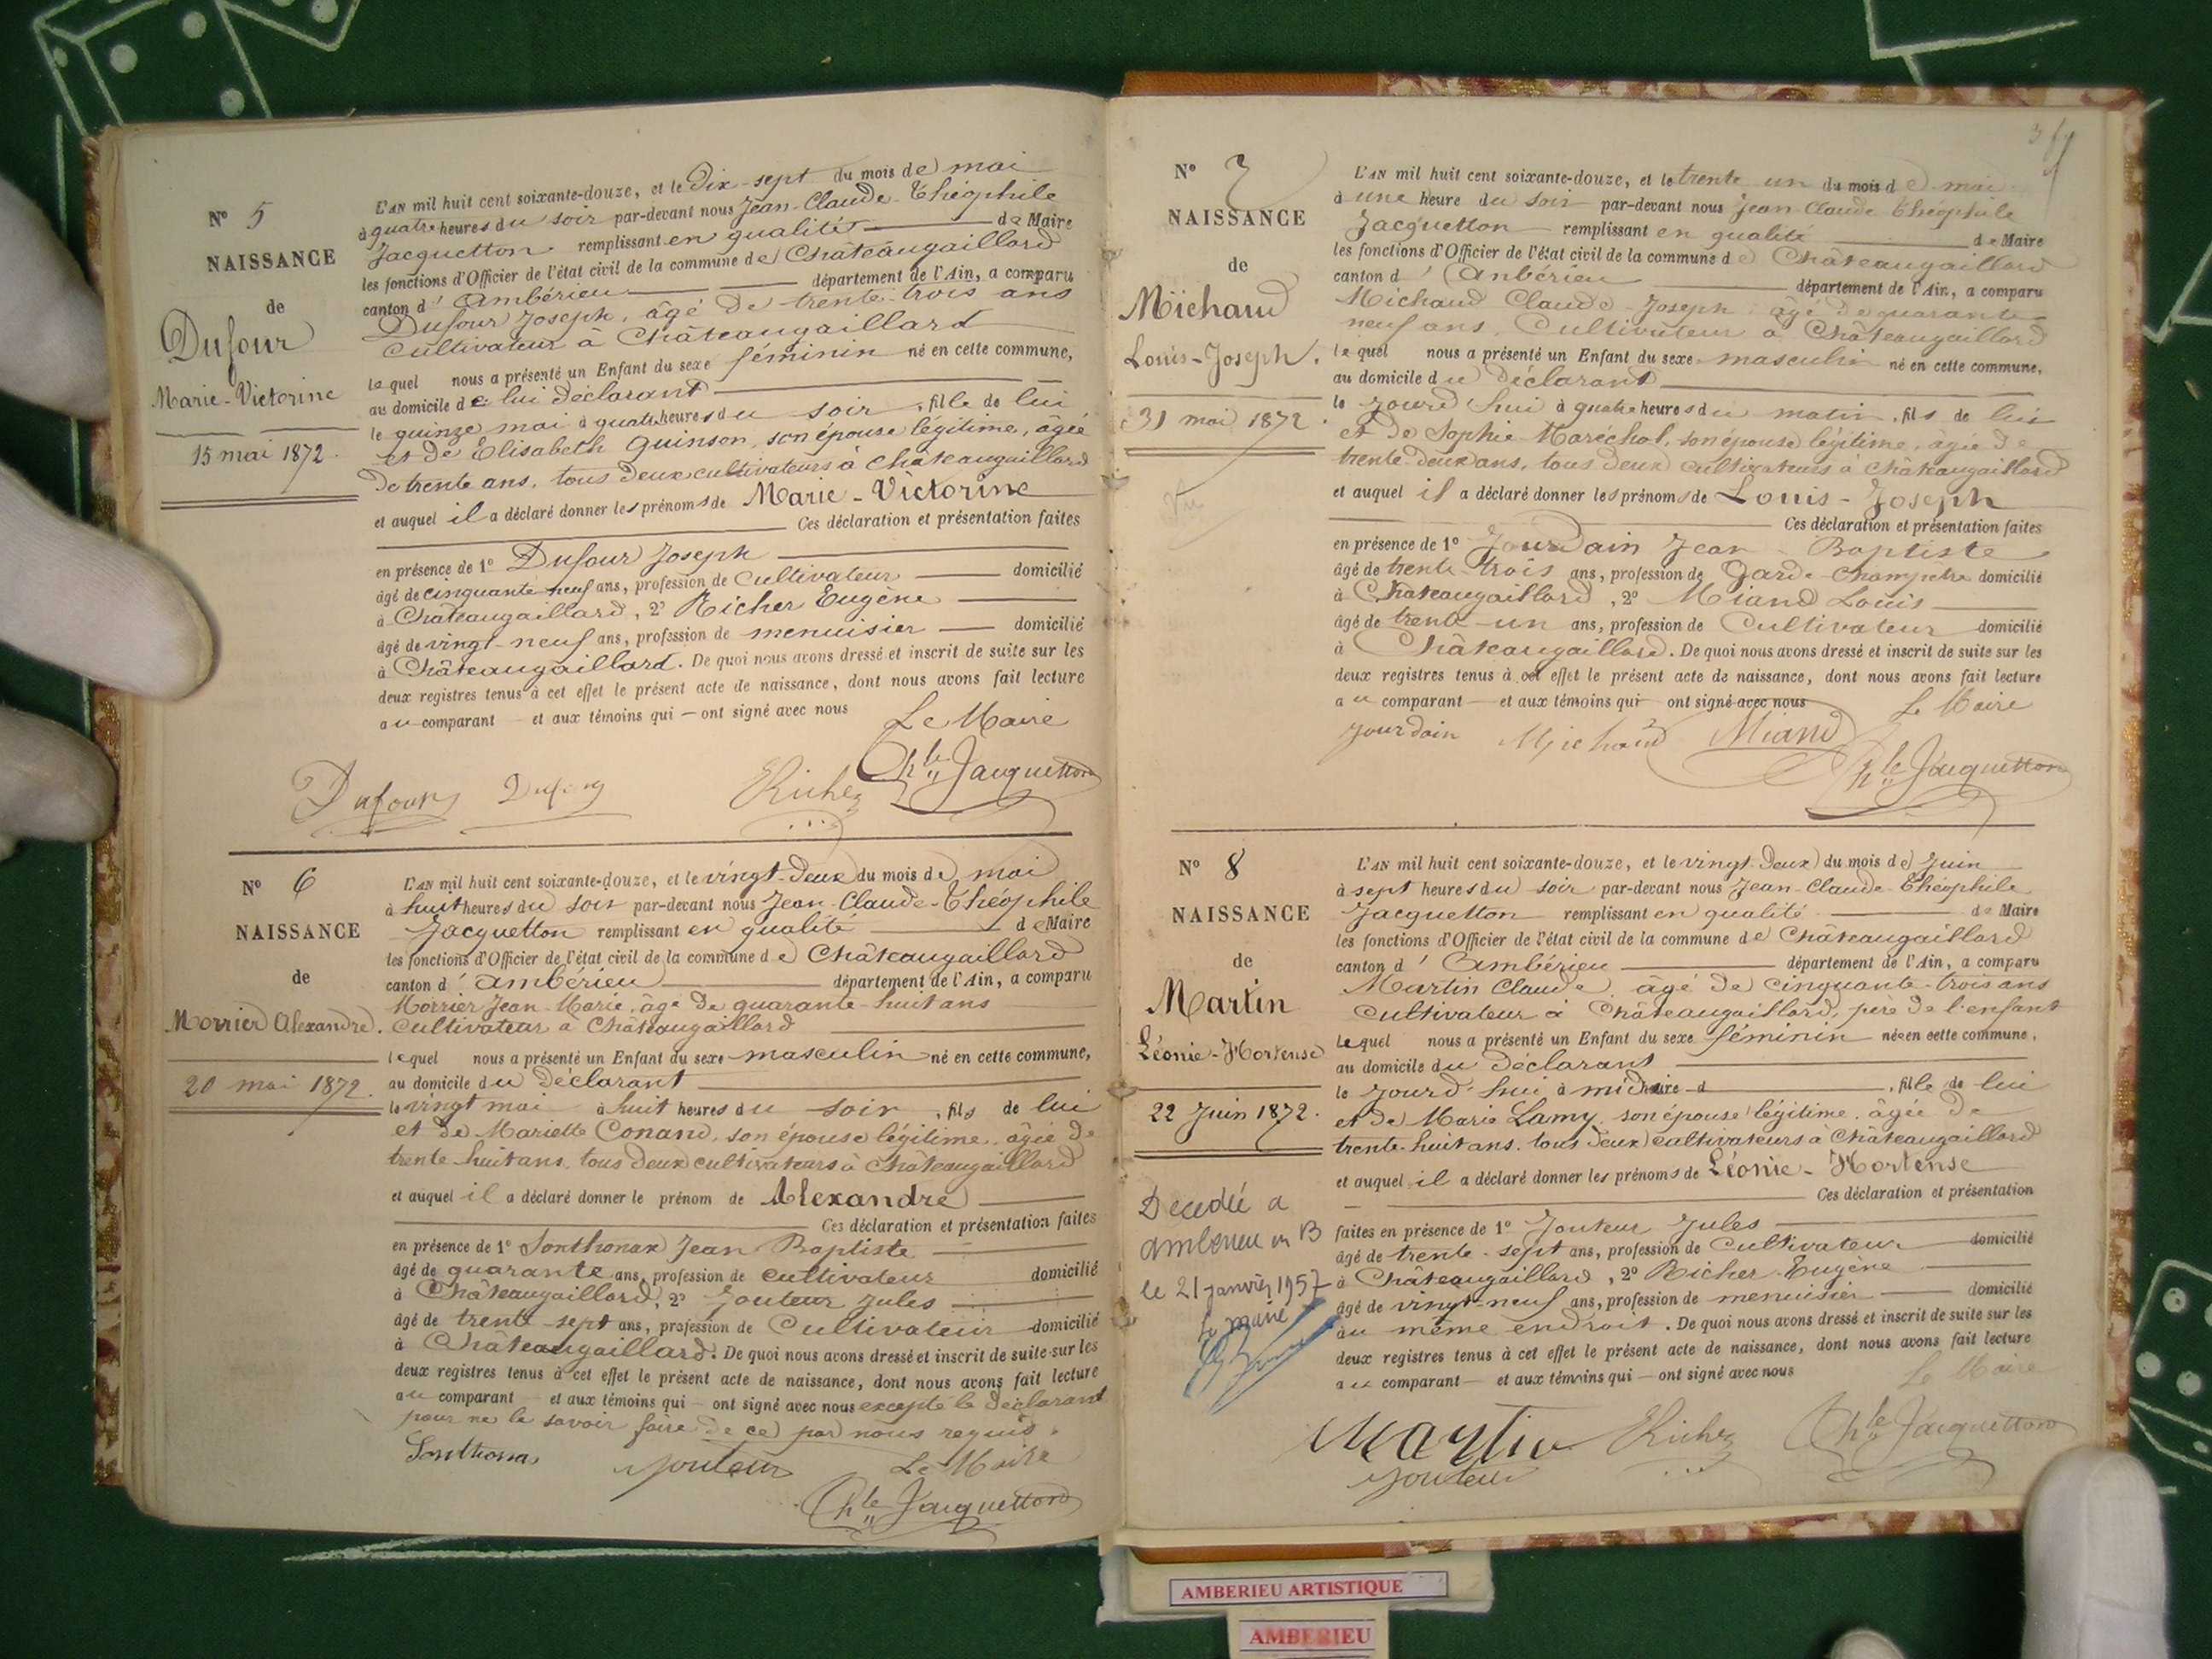 N° 5
NAISSANCE
de
Dufour
Marie-Victorine
15 mai 1872.
L'AN mil huit cent soixante-douze, et le Dix-sept du mois de mai
à quatre heures du soir par-devant nous Jean-Claude-Théophile
Jacquetton remplissant en qualité de Maire
les fonctions d'Officier de l'état civil de la commune de Châteaugaillard
canton d'Ambérieu département de l'Ain, a comparu
Dufour Joseph, âgé de trente-trois ans
Cultivateur à Châteaugaillard
lequel nous a présenté un Enfant du sexe féminin né en cette commune,
au domicile de lui déclarant
le quinze mai à quatre heures du soir, fille de lui
et de Elisabeth Quinson, son épouse légitime, âgée
de trente ans, tous deux cultivateurs à Châteaugaillard
et auquel il a déclaré donner les prénoms de Marie-Victorine
Ces déclaration et présentation faites
en présence de 1° Dufour Joseph
âgé de cinquante neuf ans, profession de Cultivateur domicilié
à Châteaugaillard, 2° Richer Eugène
âgé de vingt-neuf ans, profession de menuisier domicilié
à Châteaugaillard. De quoi nous avons dressé et inscrit de suite sur les
deux registres tenus à cet effet le présent acte de naissance, dont nous avons fait lecture
au comparant et aux témoins qui ont signé avec nous
Le Maire
Dufour Dufour Richer Jacquetton
N° 6
NAISSANCE
de
Morrier Alexandre.
20 mai 1872.
L'AN mil huit cent soixante-douze, et le vingt-deux du mois de mai
à huit heures du soir par-devant nous Jean-Claude-Théophile
Jacquetton remplissant en qualité de Maire
les fonctions d'Officier de l'état civil de la commune de Châteaugaillard
canton d'Ambérieu département de l'Ain, a comparu
Morrier Jean-Marie, âgé de quarante-huit ans
Cultivateur à Châteaugaillard
lequel nous a présenté un Enfant du sexe masculin né en cette commune,
au domicile du déclarant
le vingt mai à huit heures du soir, fils de lui
et de Mariette Conand, son épouse légitime âgée de
trente-huit ans, tous deux cultivateurs à Châteaugaillard
et auquel il a déclaré donner le prénom de Alexandre
Ces déclaration et présentation faites
en présence de 1° Sonthonax Jean Baptiste
âgé de quarante ans, profession de cultivateur domicilié
à Châteaugaillard, 2° Jouteur Jules
âgé de trente-sept ans, profession de Cultivateur domicilié
à Châteaugaillard. De quoi nous avons dressé et inscrit de suite sur les
deux registres tenus à cet effet le présent acte de naissance, dont nous avons fait lecture
au comparant et aux témoins qui ont signé avec nous excepté le déclarant
pour ne le savoir faire de ce par nous requis.
Sonthonax Jouteur Le Maire
Jacquetton
N° 7
NAISSANCE
de
Michaud
Louis-Joseph.
31 mai 1872.
L'AN mil huit cent soixante-douze, et le trente un du mois de mai
à une heure du soir par-devant nous Jean-Claude Théophile
Jacquetton remplissant en qualité de Maire
les fonctions d'Officier de l'état civil de la commune de Châteaugaillard
canton d'Ambérieu département de l'Ain, a comparu
Michaud Claude-Joseph âgé de quarante-
neuf ans, Cultivateur à Châteaugaillard
lequel nous a présenté un Enfant du sexe masculin né en cette commune,
au domicile du Déclarant
le jourd'hui à quatre heures du matin, fils de lui
et de Sophie Maréchal, son épouse légitime, âgée de
trente-deux ans, tous deux cultivateurs à Châteaugaillard
et auquel il a déclaré donner les prénoms de Louis-Joseph
Ces déclaration et présentation faites
en présence de 1° Jourdain Jean-Baptiste
âgé de trente-trois ans, profession de Garde-champêtre domicilié
à Châteaugaillard, 2° Miand Louis
âgé de trente-un ans, profession de Cultivateur domicilié
à Châteaugaillard. De quoi nous avons dressé et inscrit de suite sur les
deux registres tenus à cet effet le présent acte de naissance, dont nous avons fait lecture
au comparant et aux témoins qui ont signé avec nous
Le Maire
Jourdain Michaud Miand Jacquetton
N° 8
NAISSANCE
de
Martin
Léonie-Hortense
22 Juin 1872.
Décédée a
Ambérieu en B
le 21 janvier 1957
Le maire
L'AN mil huit cent soixante-douze, et le vingt-deux du mois de Juin
à sept heures du soir par-devant nous Jean-Claude-Théophile
Jacquetton remplissant en qualité de Maire
les fonctions d'Officier de l'état civil de la commune de Châteaugaillard
canton d'Ambérieu département de l'Ain, a comparu
Martin Claude, âgé de cinquante-trois ans
Cultivateur à Châteaugaillard, père de l'enfant
Lequel nous a présenté un Enfant du sexe féminin née en cette commune,
au domicile du déclarant
le jourd'hui à midi heure d , fille de lui
et de Marie Lamy, son épouse légitime, âgée de
trente-huit ans, tous deux cultivateurs à Châteaugaillard
et auquel il a déclaré donner les prénoms de Léonie-Hortense
Ces déclaration et présentation
faites en présence de 1° Jouteur Jules
âgé de trente-sept ans, profession de Cultivateur domicilié
à Châteaugaillard, 2° Richer Eugène
âgé de vingt-neuf ans, profession de menuisier domicilié
au même endroit. De quoi nous avons dressé et inscrit de suite sur les
deux registres tenus à cet effet le présent acte de naissance, dont nous avons fait lecture
au comparant et aux témoins qui ont signé avec nous
Le Maire
Martin Richer Jacquetton
Jouteur
AMBERIEU ARTISTIQUE
AMBERIEU